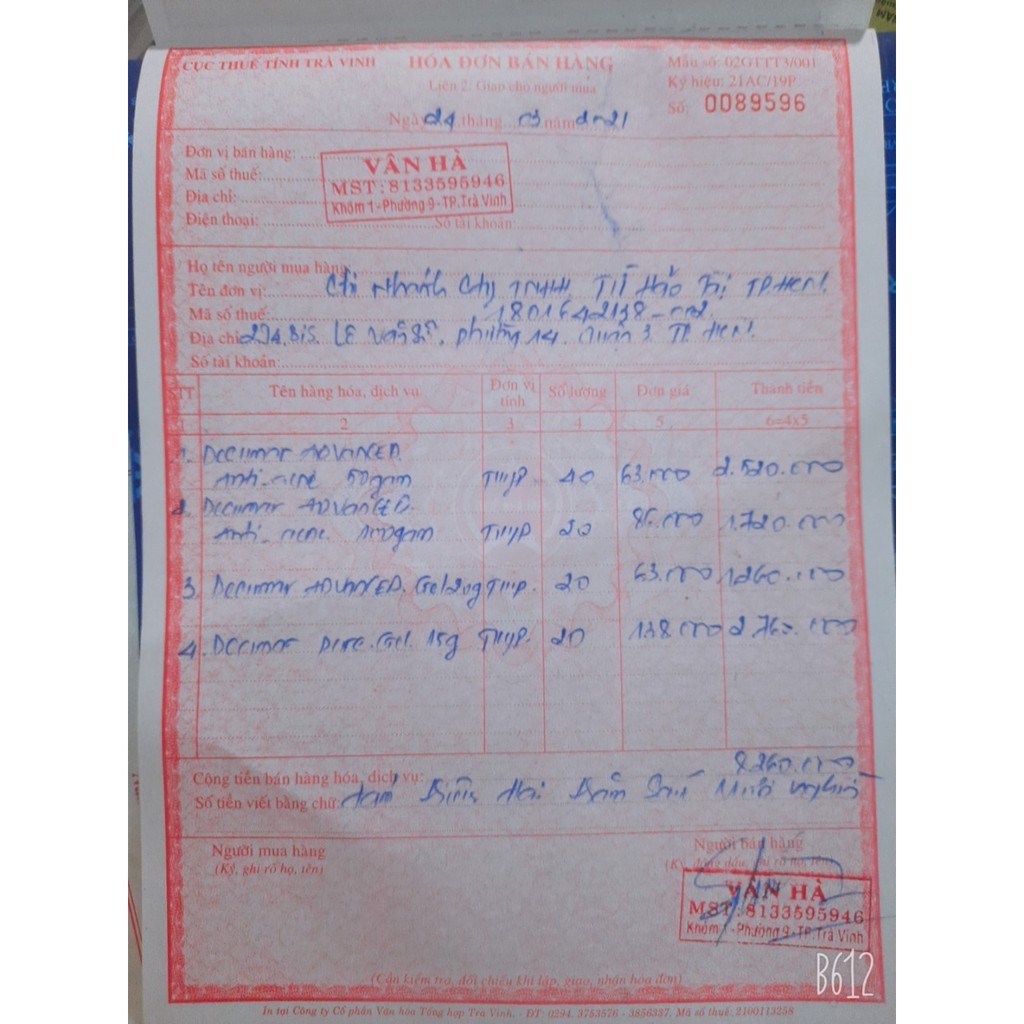 CỤC THUẾ TỈNH TRÀ VINH
HÓA ĐƠN BÁN HÀNG
Liên 2: Giao cho người mua
Mẫu số: 02GTTT3/001
Ký hiệu: 21AC/19P
Số: 0089596
Ngày 24 tháng 03 năm 2021
Đơn vị bán hàng:
Mã số thuế:
Địa chỉ:
Điện thoại: Số tài khoản:
VÂN HÀ
MST: 8133595946
Khóm 1-Phường 9-TP.Trà Vinh
Họ tên người mua hàng:
Tên đơn vị: Chi Nhánh Cty TNHH Hảo TP.HCM
Mã số thuế:
Địa chỉ: Lê Văn Sỹ, phường 14. Quận 3. TP HCM
Số tài khoản:
STT Tên hàng hóa, dịch vụ Đơn vị tính Số lượng Đơn giá Thành tiền
1 2 3 4 5 6=4x5
1. Decumar ADVANCED
Anti-acne 50gam Tuýp 40 63.000 2.520.000
2. Decumar ADVANCED
Anti-acne Tuýp 20 86.000 1.720.000
3. Decumar ADVANCED. Gel 20g Tuýp 20 63.000 1.260.000
4. Decumar Gel. 15g Tuýp. 20 138.000 2.760.000
Cộng tiền bán hàng hóa, dịch vụ: 8.260.000
Số tiền viết bằng chữ: Tám Triệu Hai Trăm Sáu Mươi Nghìn
Người mua hàng
(Ký, ghi rõ họ, tên)
Người bán hàng
(Ký, đóng dấu, ghi rõ họ, tên)
VÂN HÀ
MST: 8133595946
Khóm 1-Phường 9-TP.Trà Vinh
(Cần kiểm tra, đối chiếu khi lập, giao, nhận hóa đơn)
In tại Công ty Cổ phần Văn hóa Tổng hợp Trà Vinh. - ĐT: 0294. 3753576 - 3856337. Mã số thuế: 2100113258
B612